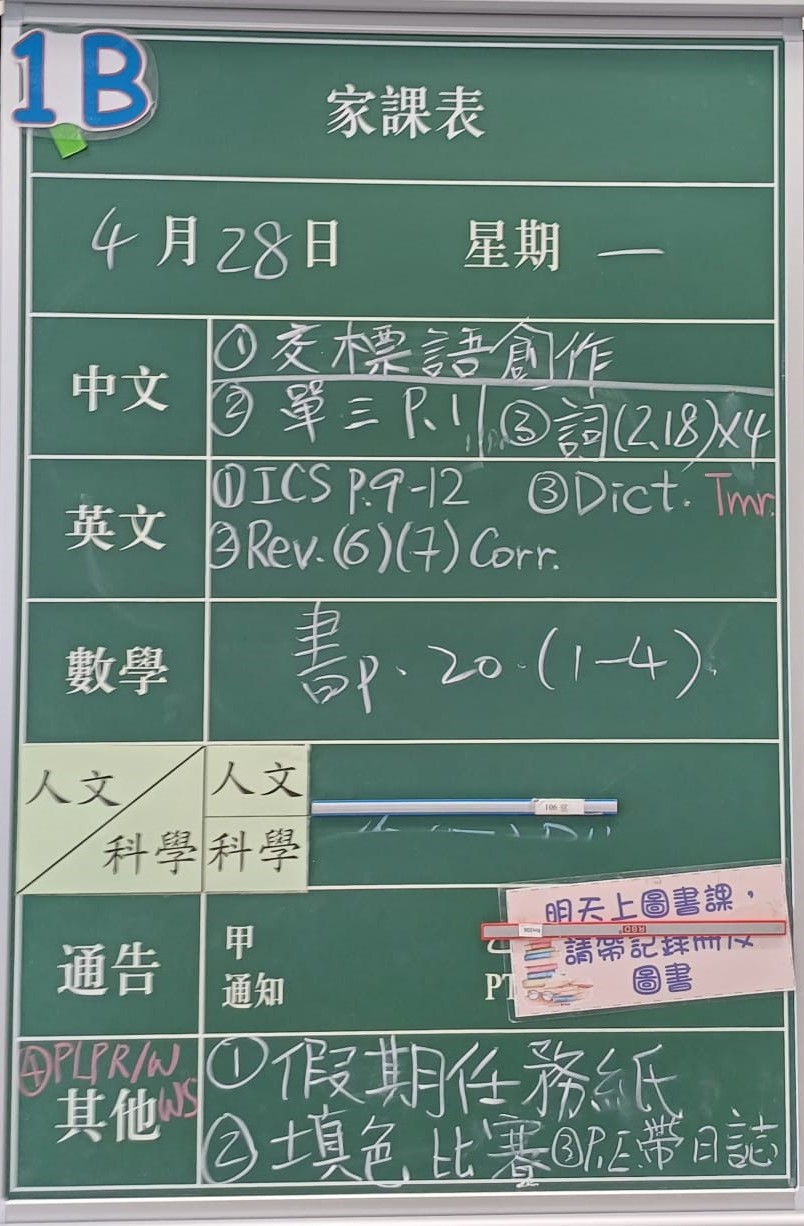 1B
家課表
4月28日 星期一
中文
①交標語創作
②單三 P.11 ③詞(2,18)x4
英文
①ICS p.9-12 ③Dict. Tmr.
②Rev.(6)(7) Corr.
數學
書p.20.(1-4).
人文
科學
人文
106室
科學
通告
甲
通知
PT
明天上圖書課，
請帶記錄冊及
圖書
④PLPR/W
WS
其他
①假期任務紙
②填色比賽③P.E.帶日誌